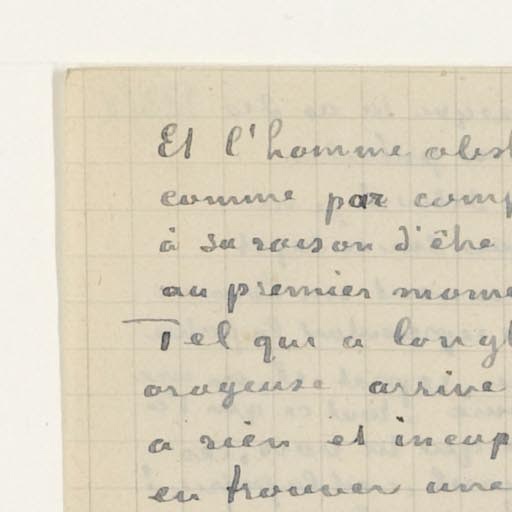 Et l'homme obst
comme par comp
à sa raison d'être
au premier mome
Tel qui a longt
orageuse arrive
a rien et incap
en trouver une